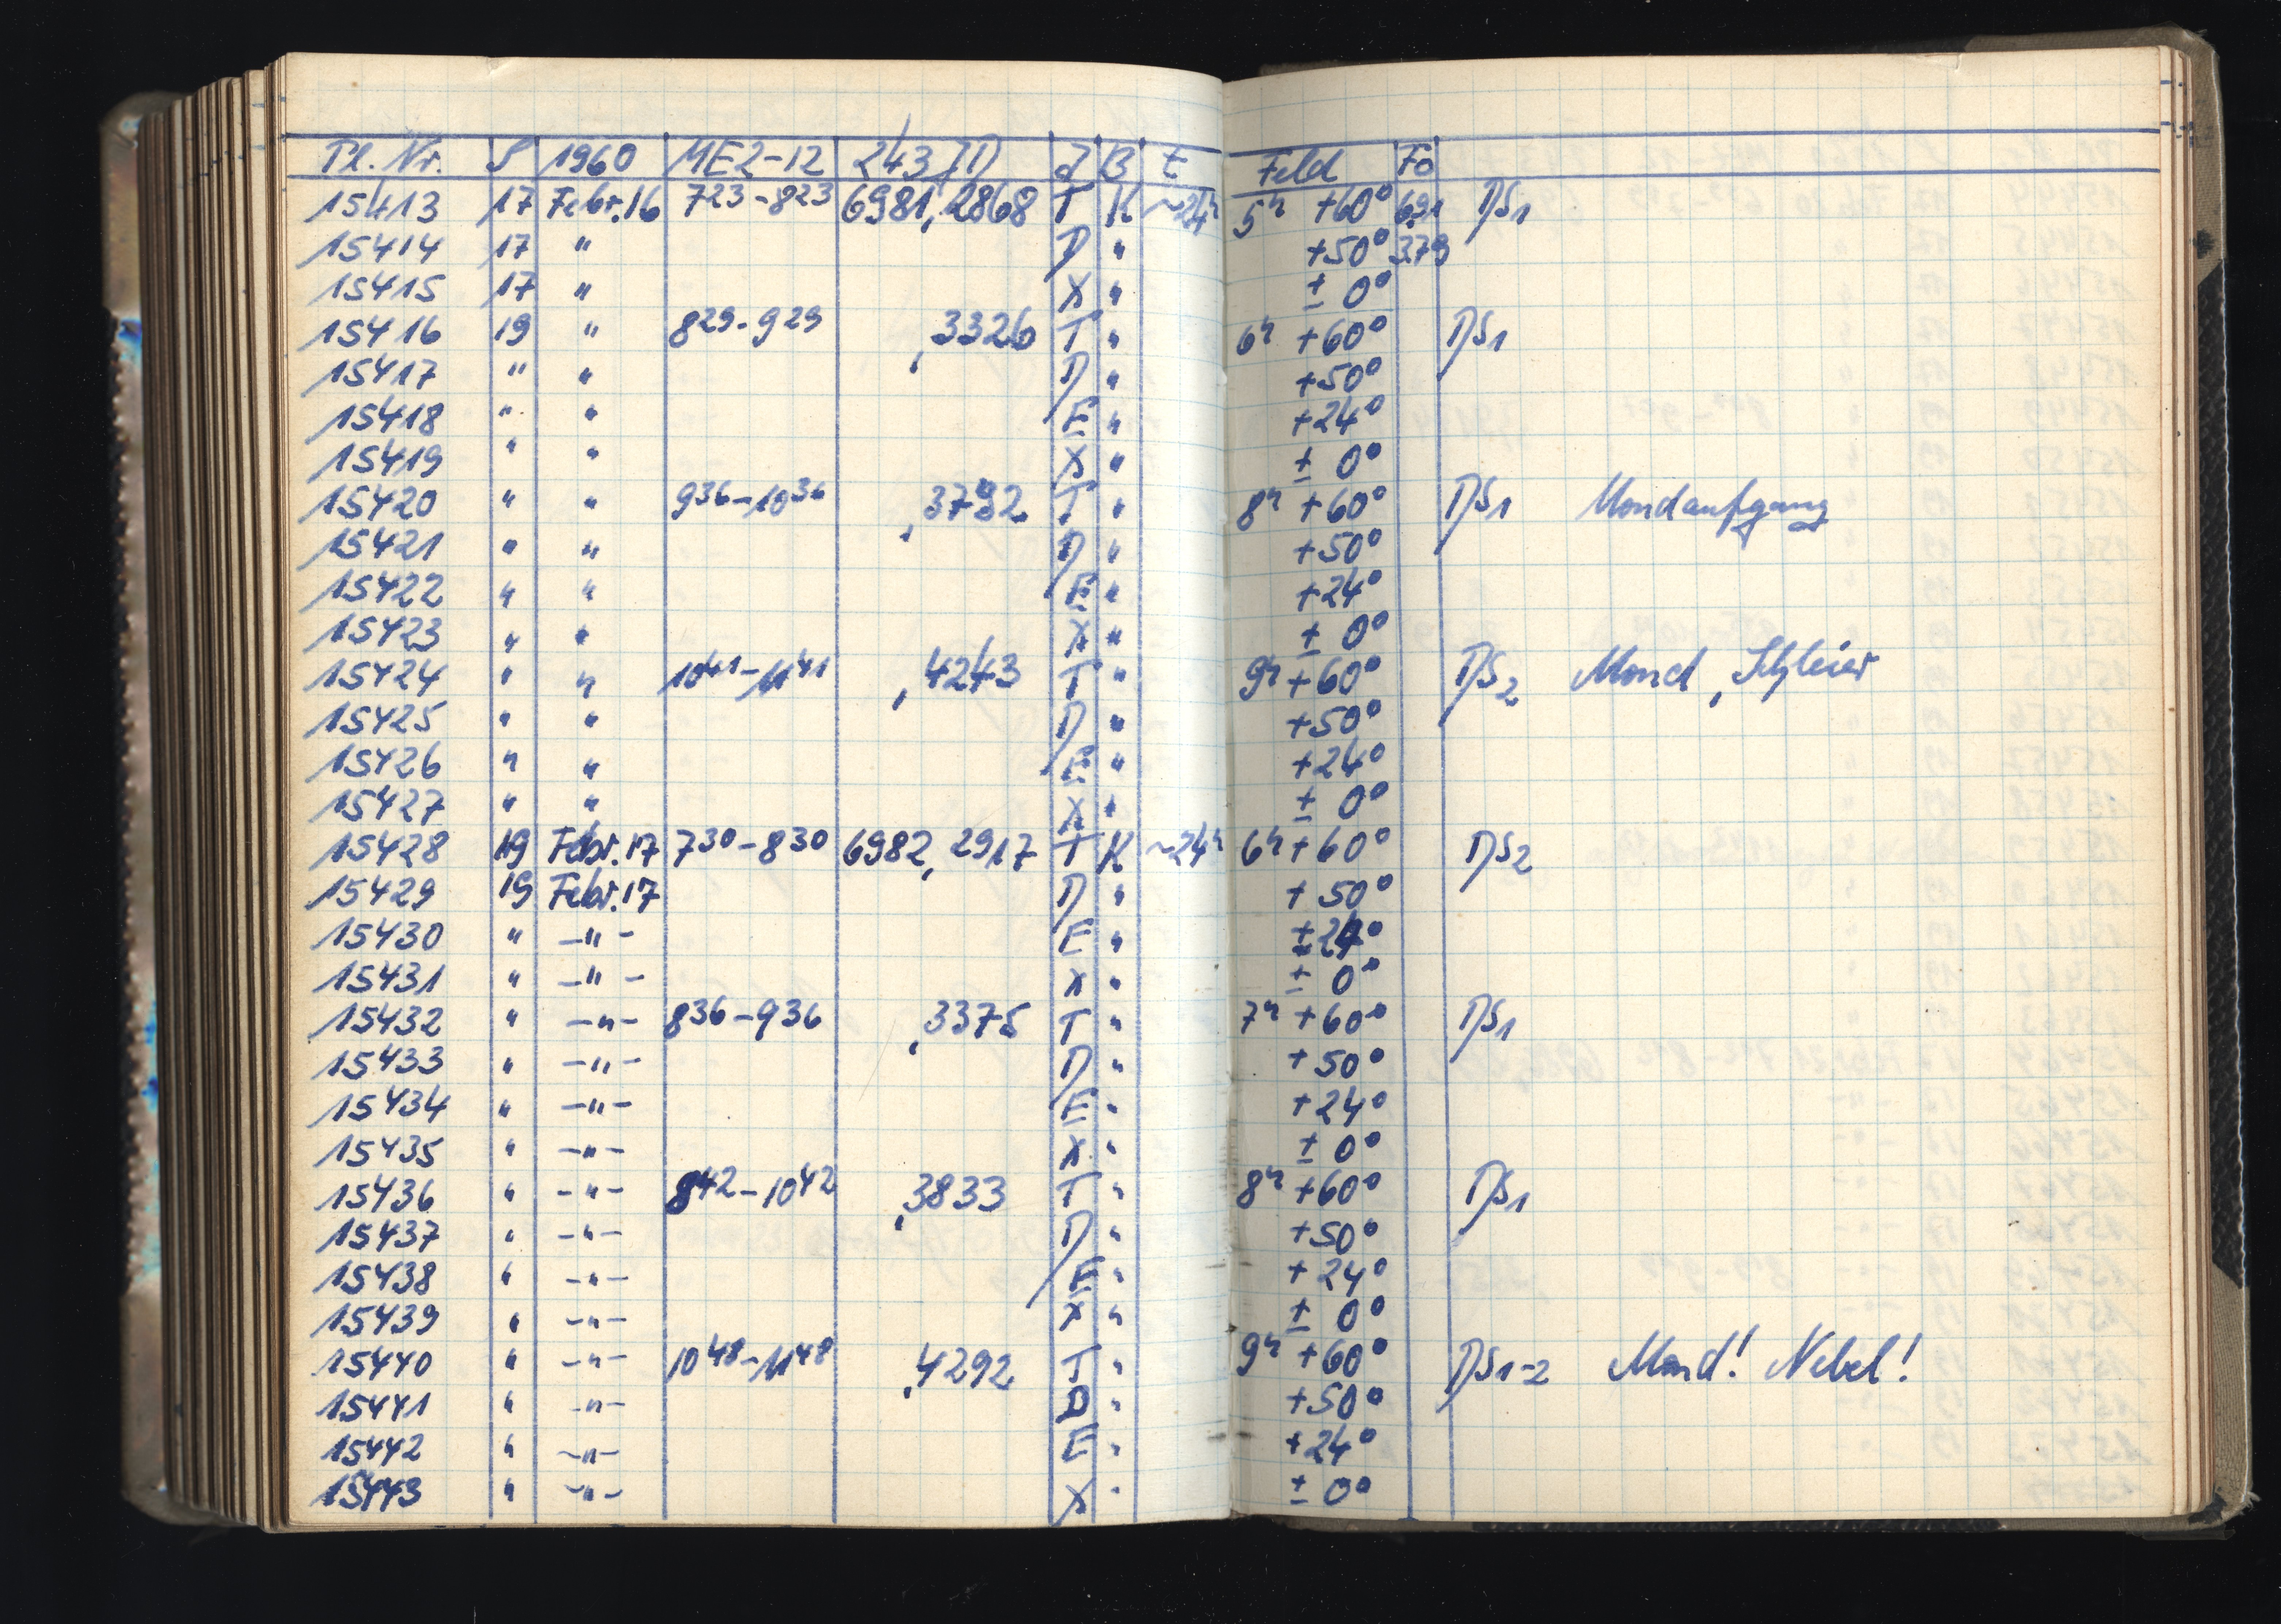 Pl. Nr. S 1960 ME2-12 243 JD J B t Feld Fo
15413 17 Febr.16 7²³-8²³ 6981,2868 T K ~24ʰ 5ʰ +60° 691 DS1
15414 17 " D " +50° 379
15415 17 " X " ± 0°
15416 19 " 8²⁹-9²⁹ ,3326 T " 6ʰ +60° DS1
15417 " " D " +50°
15418 " " E " +24°
15419 " " X " ± 0°
15420 " " 9³⁶-10³⁶ ,3792 T " 8ʰ +60° DS1 Mondaufgang
15421 " " D " +50°
15422 " " E " +24°
15423 " " X " ± 0°
15424 " " 10⁴¹-11⁴¹ ,4243 T " 9ʰ +60° DS2 Mond, Schleier
15425 " " D " +50°
15426 " " E " +24°
15427 " " X " ± 0°
15428 19 Febr.17 7³⁰-8³⁰ 6982,2917 T K ~24ʰ 6ʰ +60° DS2
15429 19 Febr.17 D " +50°
15430 " -"- E " +24°
15431 " -"- X " ± 0°
15432 " -"- 8³⁶-9³⁶ ,3375 T " 7ʰ +60° DS1
15433 " -"- D " +50°
15434 " -"- E " +24°
15435 " -"- X " ± 0°
15436 " -"- 9⁴²-10⁴² ,3833 T " 8ʰ +60° DS1
15437 " -"- D " +50°
15438 " -"- E " +24°
15439 " -"- X " ± 0°
15440 " -"- 10⁴⁸-11⁴⁸ ,4292 T " 9ʰ +60° DS1-2 Mond! Nebel!
15441 " -"- D " +50°
15442 " -"- E " +24°
15443 " -"- X " ± 0°